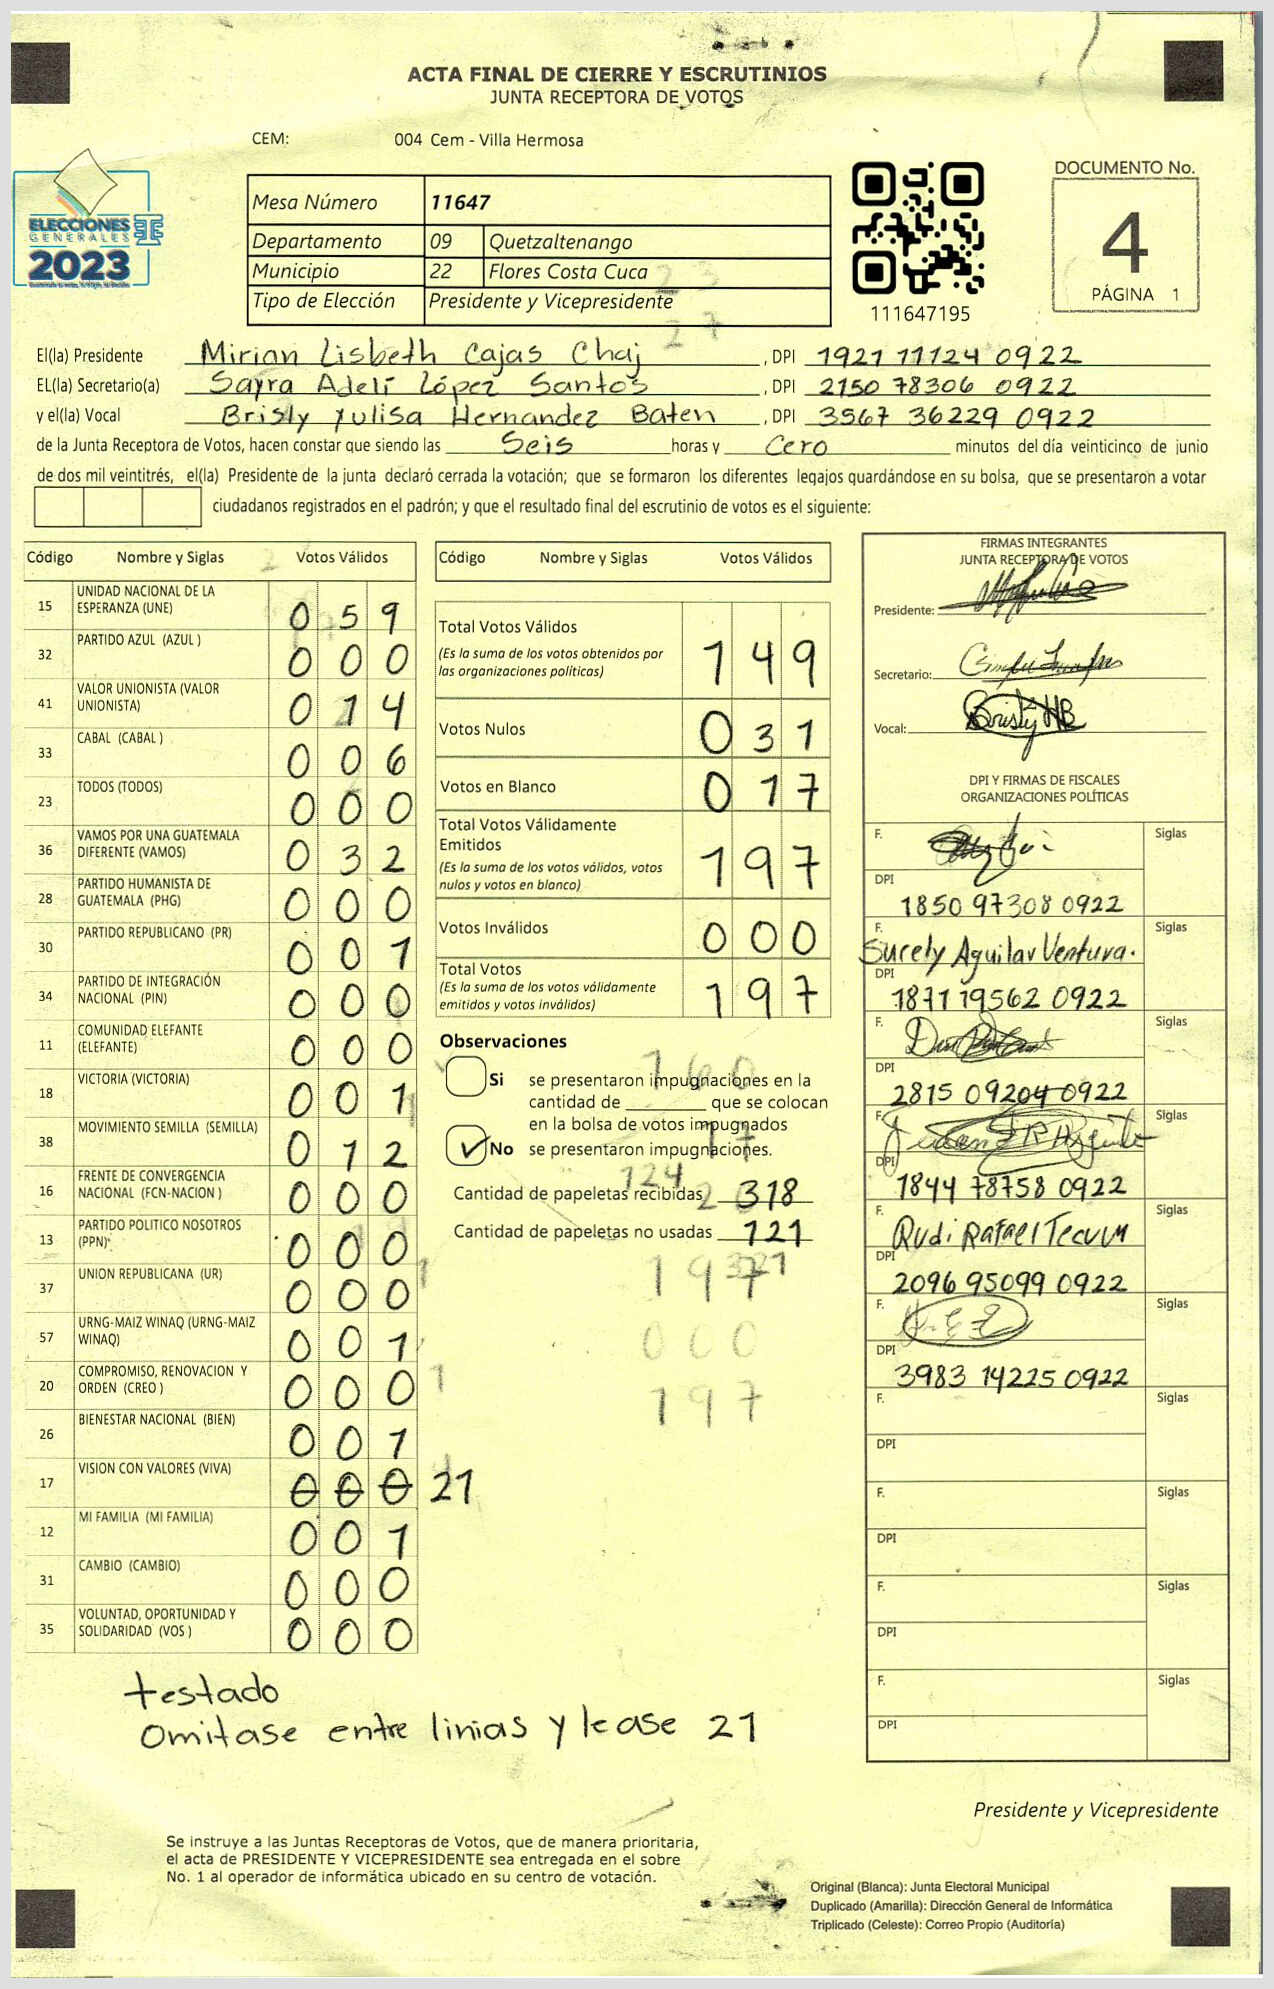 ACTA FINAL DE CIERRE Y ESCRUTINIOS
JUNTA RECEPTORA DE VOTOS
CEM: 004 Cem - Villa Hermosa
ELECCIONES
GENERALES
2023
Mesa Número 11647
Departamento 09 Quetzaltenango
Municipio 22 Flores Costa Cuca
Tipo de Elección Presidente y Vicepresidente
111647195
DOCUMENTO No.
4
PÁGINA 1
El(la) Presidente Mirian Lisbeth Cajas Chaj, DPI 1921 11124 0922
EL(la) Secretario(a) Sayra Adelí López Santos, DPI 2150 78306 0922
y el(la) Vocal Brisly Yulisa Hernandez Baten, DPI 3567 36229 0922
de la Junta Receptora de Votos, hacen constar que siendo las Seis horas y Cero minutos del día veinticinco de junio
de dos mil veintitrés, el(la) Presidente de la junta declaró cerrada la votación; que se formaron los diferentes legajos guardándose en su bolsa, que se presentaron a votar
ciudadanos registrados en el padrón; y que el resultado final del escrutinio de votos es el siguiente:
Código Nombre y Siglas Votos Válidos
15 UNIDAD NACIONAL DE LA
ESPERANZA (UNE) 0 5 9
32 PARTIDO AZUL (AZUL ) 0 0 0
41 VALOR UNIONISTA (VALOR
UNIONISTA) 0 1 4
33 CABAL (CABAL ) 0 0 6
23 TODOS (TODOS) 0 0 0
36 VAMOS POR UNA GUATEMALA
DIFERENTE (VAMOS) 0 3 2
28 PARTIDO HUMANISTA DE
GUATEMALA (PHG) 0 0 0
30 PARTIDO REPUBLICANO (PR) 0 0 1
34 PARTIDO DE INTEGRACIÓN
NACIONAL (PIN) 0 0 0
11 COMUNIDAD ELEFANTE
(ELEFANTE) 0 0 0
18 VICTORIA (VICTORIA) 0 0 1
38 MOVIMIENTO SEMILLA (SEMILLA) 0 1 2
16 FRENTE DE CONVERGENCIA
NACIONAL (FCN-NACION ) 0 0 0
13 PARTIDO POLITICO NOSOTROS
(PPN) 0 0 0
37 UNION REPUBLICANA (UR) 0 0 0
57 URNG-MAIZ WINAQ (URNG-MAIZ
WINAQ) 0 0 1
20 COMPROMISO, RENOVACION Y
ORDEN (CREO ) 0 0 0
26 BIENESTAR NACIONAL (BIEN) 0 0 1
17 VISION CON VALORES (VIVA) 0 0 0 21
12 MI FAMILIA (MI FAMILIA) 0 0 1
31 CAMBIO (CAMBIO) 0 0 0
35 VOLUNTAD, OPORTUNIDAD Y
SOLIDARIDAD (VOS ) 0 0 0
testado
Omitase entre linias y lease 21
Código Nombre y Siglas Votos Válidos
Total Votos Válidos 1 4 9
(Es la suma de los votos obtenidos por
las organizaciones políticas)
Votos Nulos 0 3 1
Votos en Blanco 0 1 7
Total Votos Válidamente
Emitidos 1 9 7
(Es la suma de los votos válidos, votos
nulos y votos en blanco)
Votos Inválidos 0 0 0
Total Votos 1 9 7
(Es la suma de los votos válidamente
emitidos y votos inválidos)
Observaciones
Si se presentaron impugnaciones en la
cantidad de ________ que se colocan
en la bolsa de votos impugnados
No se presentaron impugnaciones.
Cantidad de papeletas recibidas 318
Cantidad de papeletas no usadas 121
1 9 7
0 0 0
1 9 7
FIRMAS INTEGRANTES
JUNTA RECEPTORA DE VOTOS
Presidente:
Secretario:
Vocal: Brisly HB
DPI Y FIRMAS DE FISCALES
ORGANIZACIONES POLÍTICAS
F. Siglas
DPI
1850 97308 0922
F. Siglas
Surely Aguilar Ventura.
DPI
1871 19562 0922
F. Siglas
DPI
2815 09204 0922
F. Siglas
DPI
1844 78758 0922
F. Siglas
Rudi Rafael Tecum
DPI
2096 95099 0922
F. Siglas
DPI
3983 14225 0922
F. Siglas
DPI
F. Siglas
DPI
F. Siglas
DPI
F. Siglas
DPI
Presidente y Vicepresidente
Se instruye a las Juntas Receptoras de Votos, que de manera prioritaria,
el acta de PRESIDENTE Y VICEPRESIDENTE sea entregada en el sobre
No. 1 al operador de informática ubicado en su centro de votación.
Original (Blanca): Junta Electoral Municipal
Duplicado (Amarilla): Dirección General de Informática
Triplicado (Celeste): Correo Propio (Auditoría)